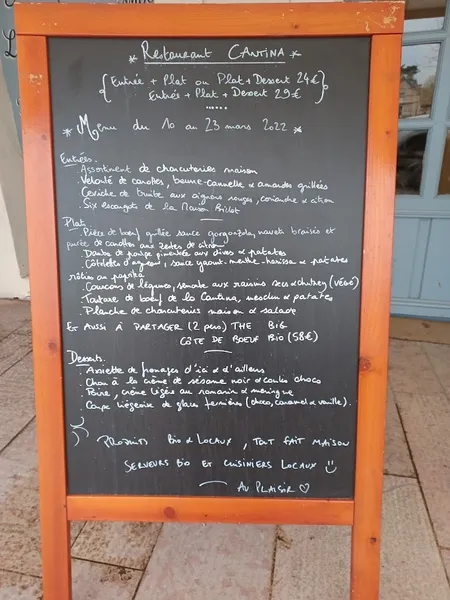 * Restaurant CANTINA *
{Entrée + Plat ou Plat + Dessert 24€
Entrée + Plat + Dessert 29€}
* Menu du 10 au 23 mars 2022 *
Entrées.
. Assortiment de charcuteries maison
. Velouté de carottes, beurre-cannelle & amandes grillées
. Ceviche de truite aux oignons rouges, coriandre & citron
. Six escargots de la Maison
Plat
. Pièce de boeuf grillée sauce gorgonzola, navets braisés et
purée de carottes aux zestes de citron
. Daube de poulpe pimentée aux olives & patates
. Côtelettes d'agneau, sauce yaourt-menthe-harissa & patates
rôties au paprika
. Couscous de légumes, semoule aux raisins secs & chutney (VÉGÉ)
. Tartare de boeuf de la Cantina, mesclun & patates
. Planche de charcuteries maison & salade
ET AUSSI À PARTAGER (2 pers) THE BIG
CÔTE DE BOEUF BIO (58€)
Desserts.
. Assiette de fromages d'ici & d'ailleurs
. Chou à la crème de sésame noir & coulis choco
. Poire, crème légère au romarin & meringue
. Coupe liégeoise de glaces fermières (choco, caramel & vanille).
PRODUITS BIO & LOCAUX, TOUT FAIT MAISON
SERVEURS BIO ET CUISINIERS LOCAUX
AU PLAISIR ♡